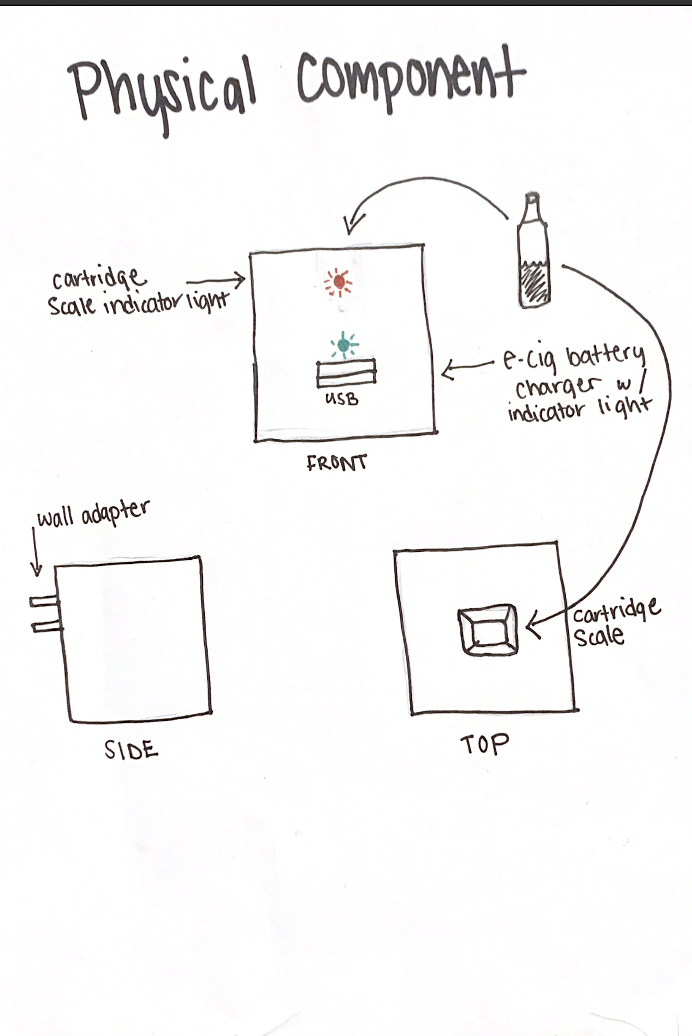 Physical Component
cartridge
Scale indicator light
e-cig battery
charger w/
indicator light
USB
FRONT
wall adapter
cartridge
Scale
SIDE
TOP